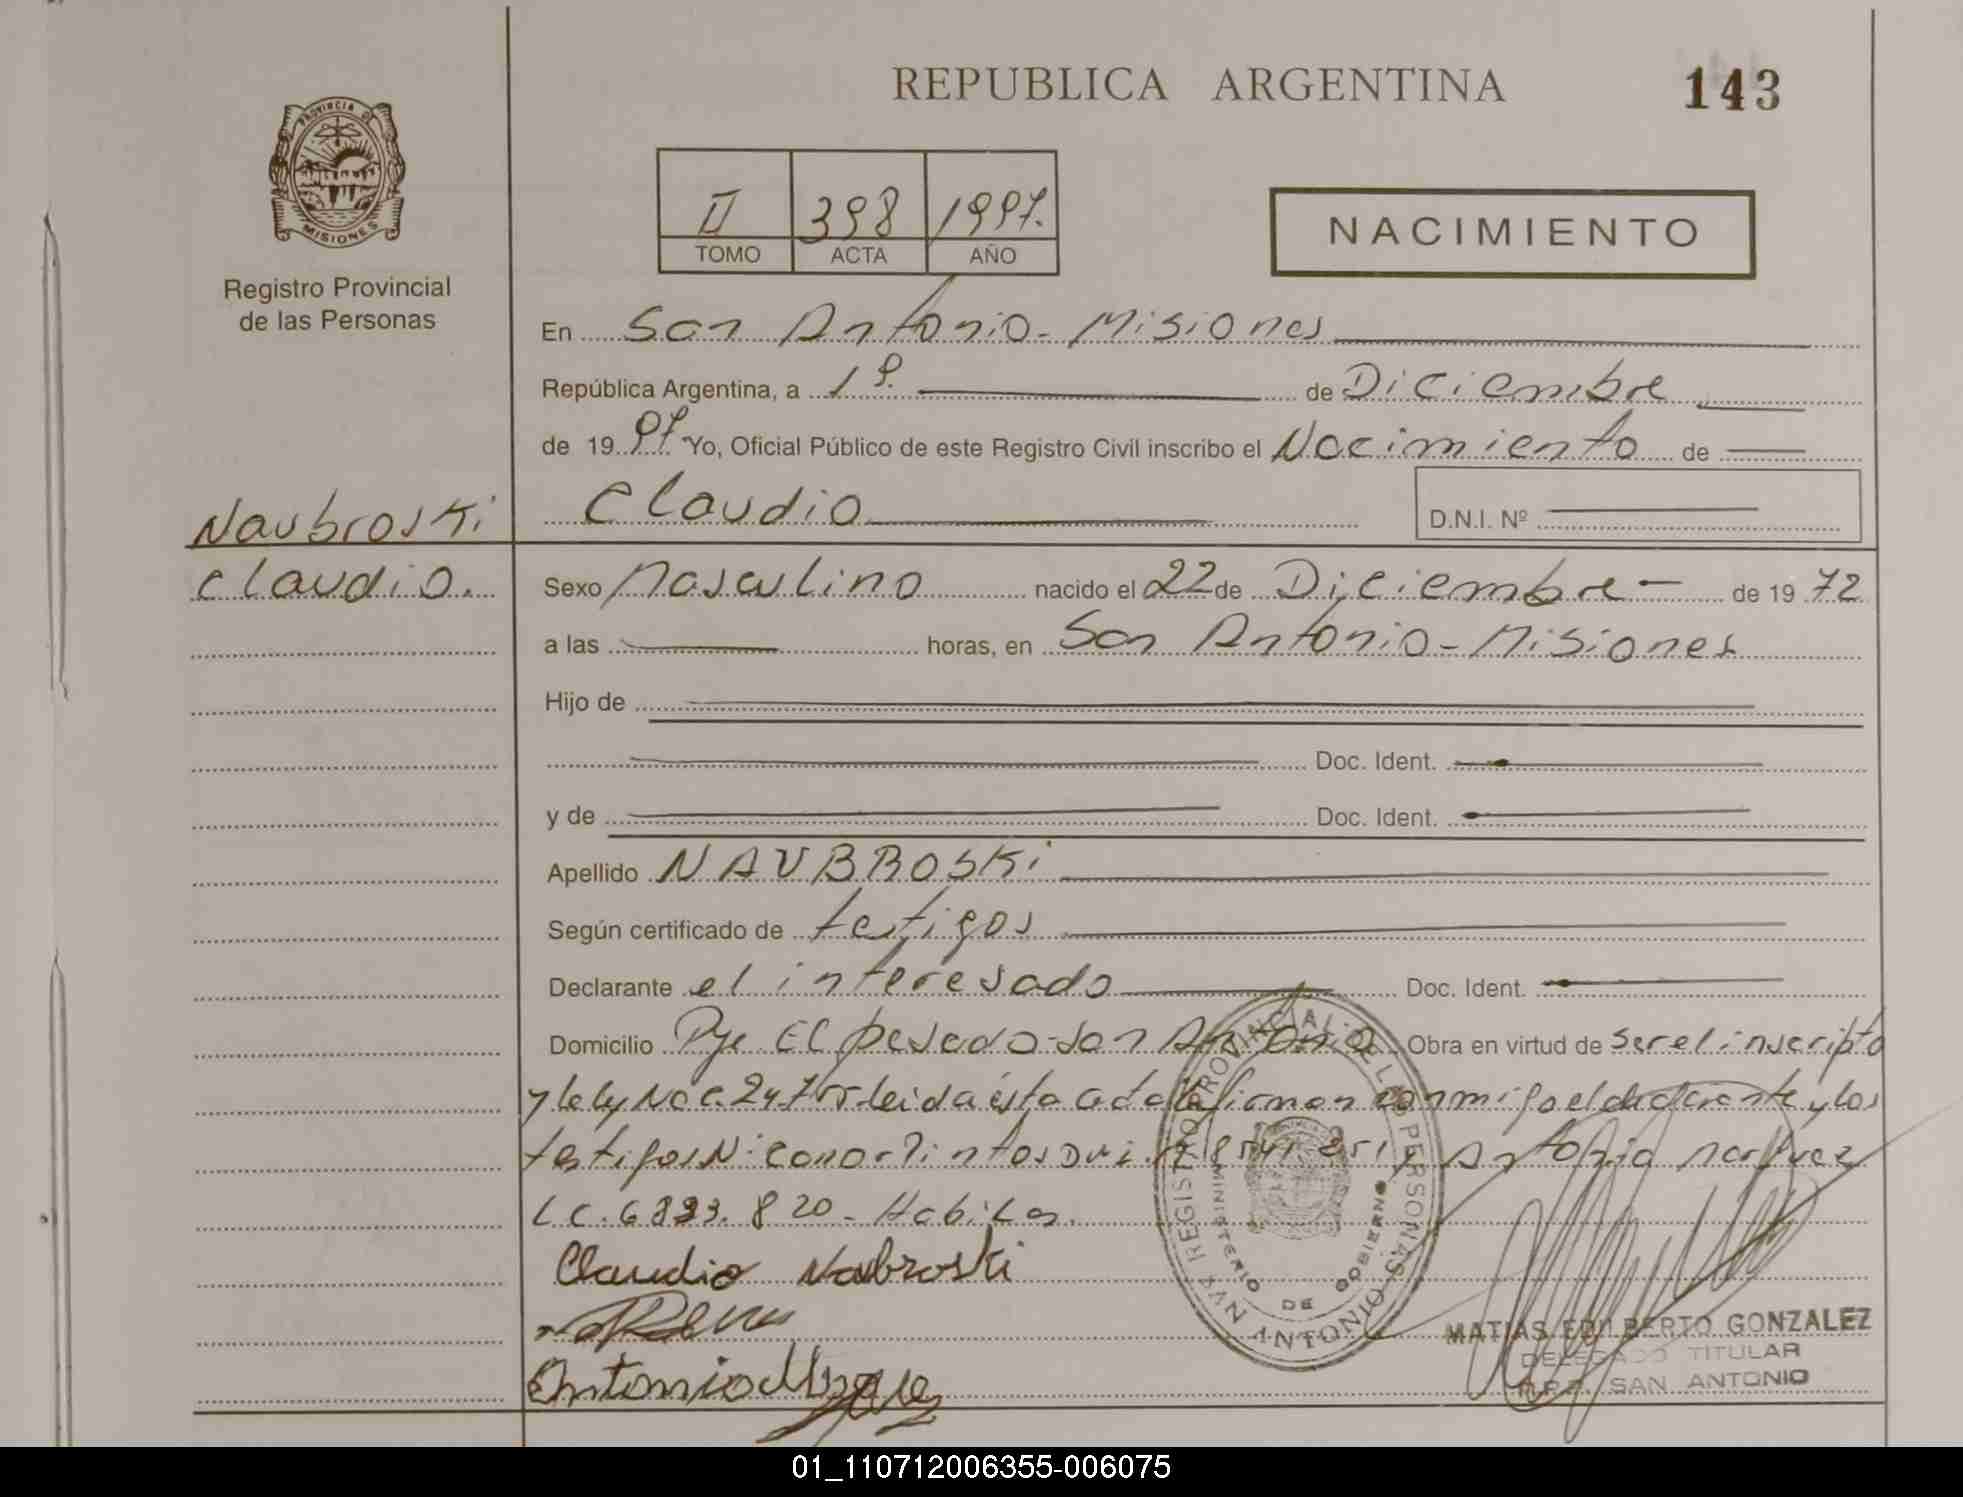 REPUBLICA ARGENTINA
143
PROVINCIA DE
MISIONES
Registro Provincial
de las Personas
II 398 1997.
TOMO ACTA AÑO
NACIMIENTO
En San Antonio - Misiones
República Argentina, a 1º. de Diciembre
de 19 97 Yo, Oficial Público de este Registro Civil inscribo el Nacimiento de
Claudio
D.N.I. Nº
Naubroski
Claudio.
Sexo Masculino nacido el 22 de Diciembre - de 19 72
a las horas, en San Antonio - Misiones
Hijo de
Doc. Ident.
y de Doc. Ident.
Apellido NAUBROSKi
Según certificado de testigos
Declarante el interesado Doc. Ident.
Domicilio Pje El pesado - San Antonio Obra en virtud de ser el inscripto
y leida ésta acta la firman conmigo el declarante y los
testigos Antonio Marquez
L.C. 820 - Habiles.
Claudio Naubroski
Antonio
REGISTRO PROVINCIAL DE LAS PERSONAS
MINISTERIO DE GOBIERNO
SAN ANTONIO
MATIAS EDILBERTO GONZALEZ
DELEGADO TITULAR
R.P.P. SAN ANTONIO
01_110712006355-006075